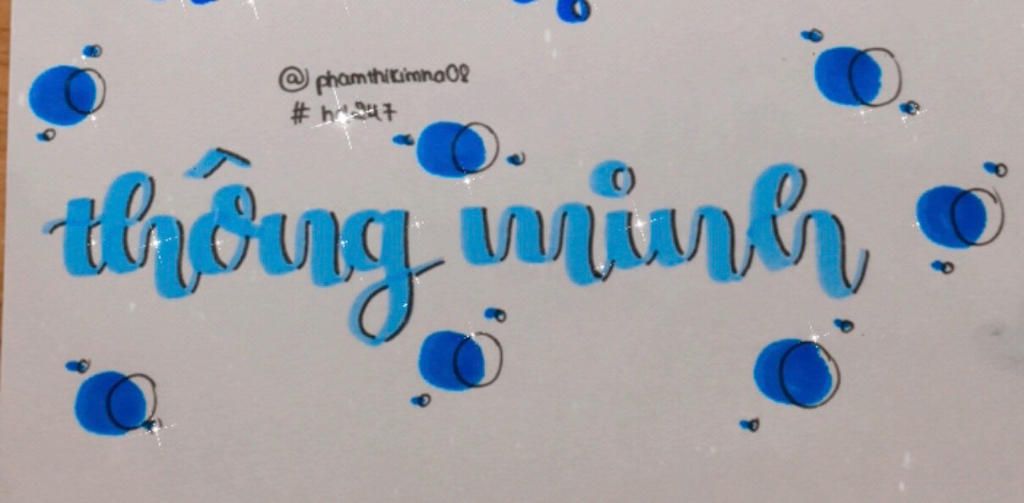 @phamthikimna08
thông minh